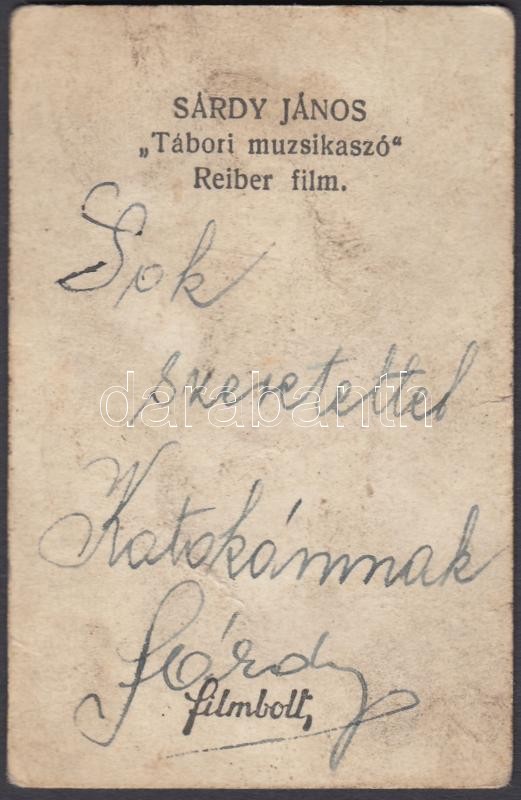 SÁRDY JÁNOS
„Tábori muzsikaszó“
Reiber film.
Sok
szeretettel
darabanth
Katókámnak
Sárdy
filmbolt,